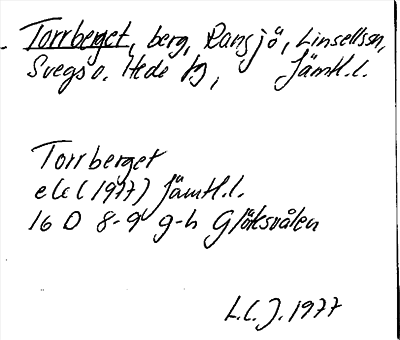 Torrberget, berg, Ransjö, Linsellssn,
Svegs o. Hede tg, Jämtl.l.
Torrberget
ek (1977) Jämtl.l.
16 D 8-9 g-h Glöksvålen
L.C.J. 1977